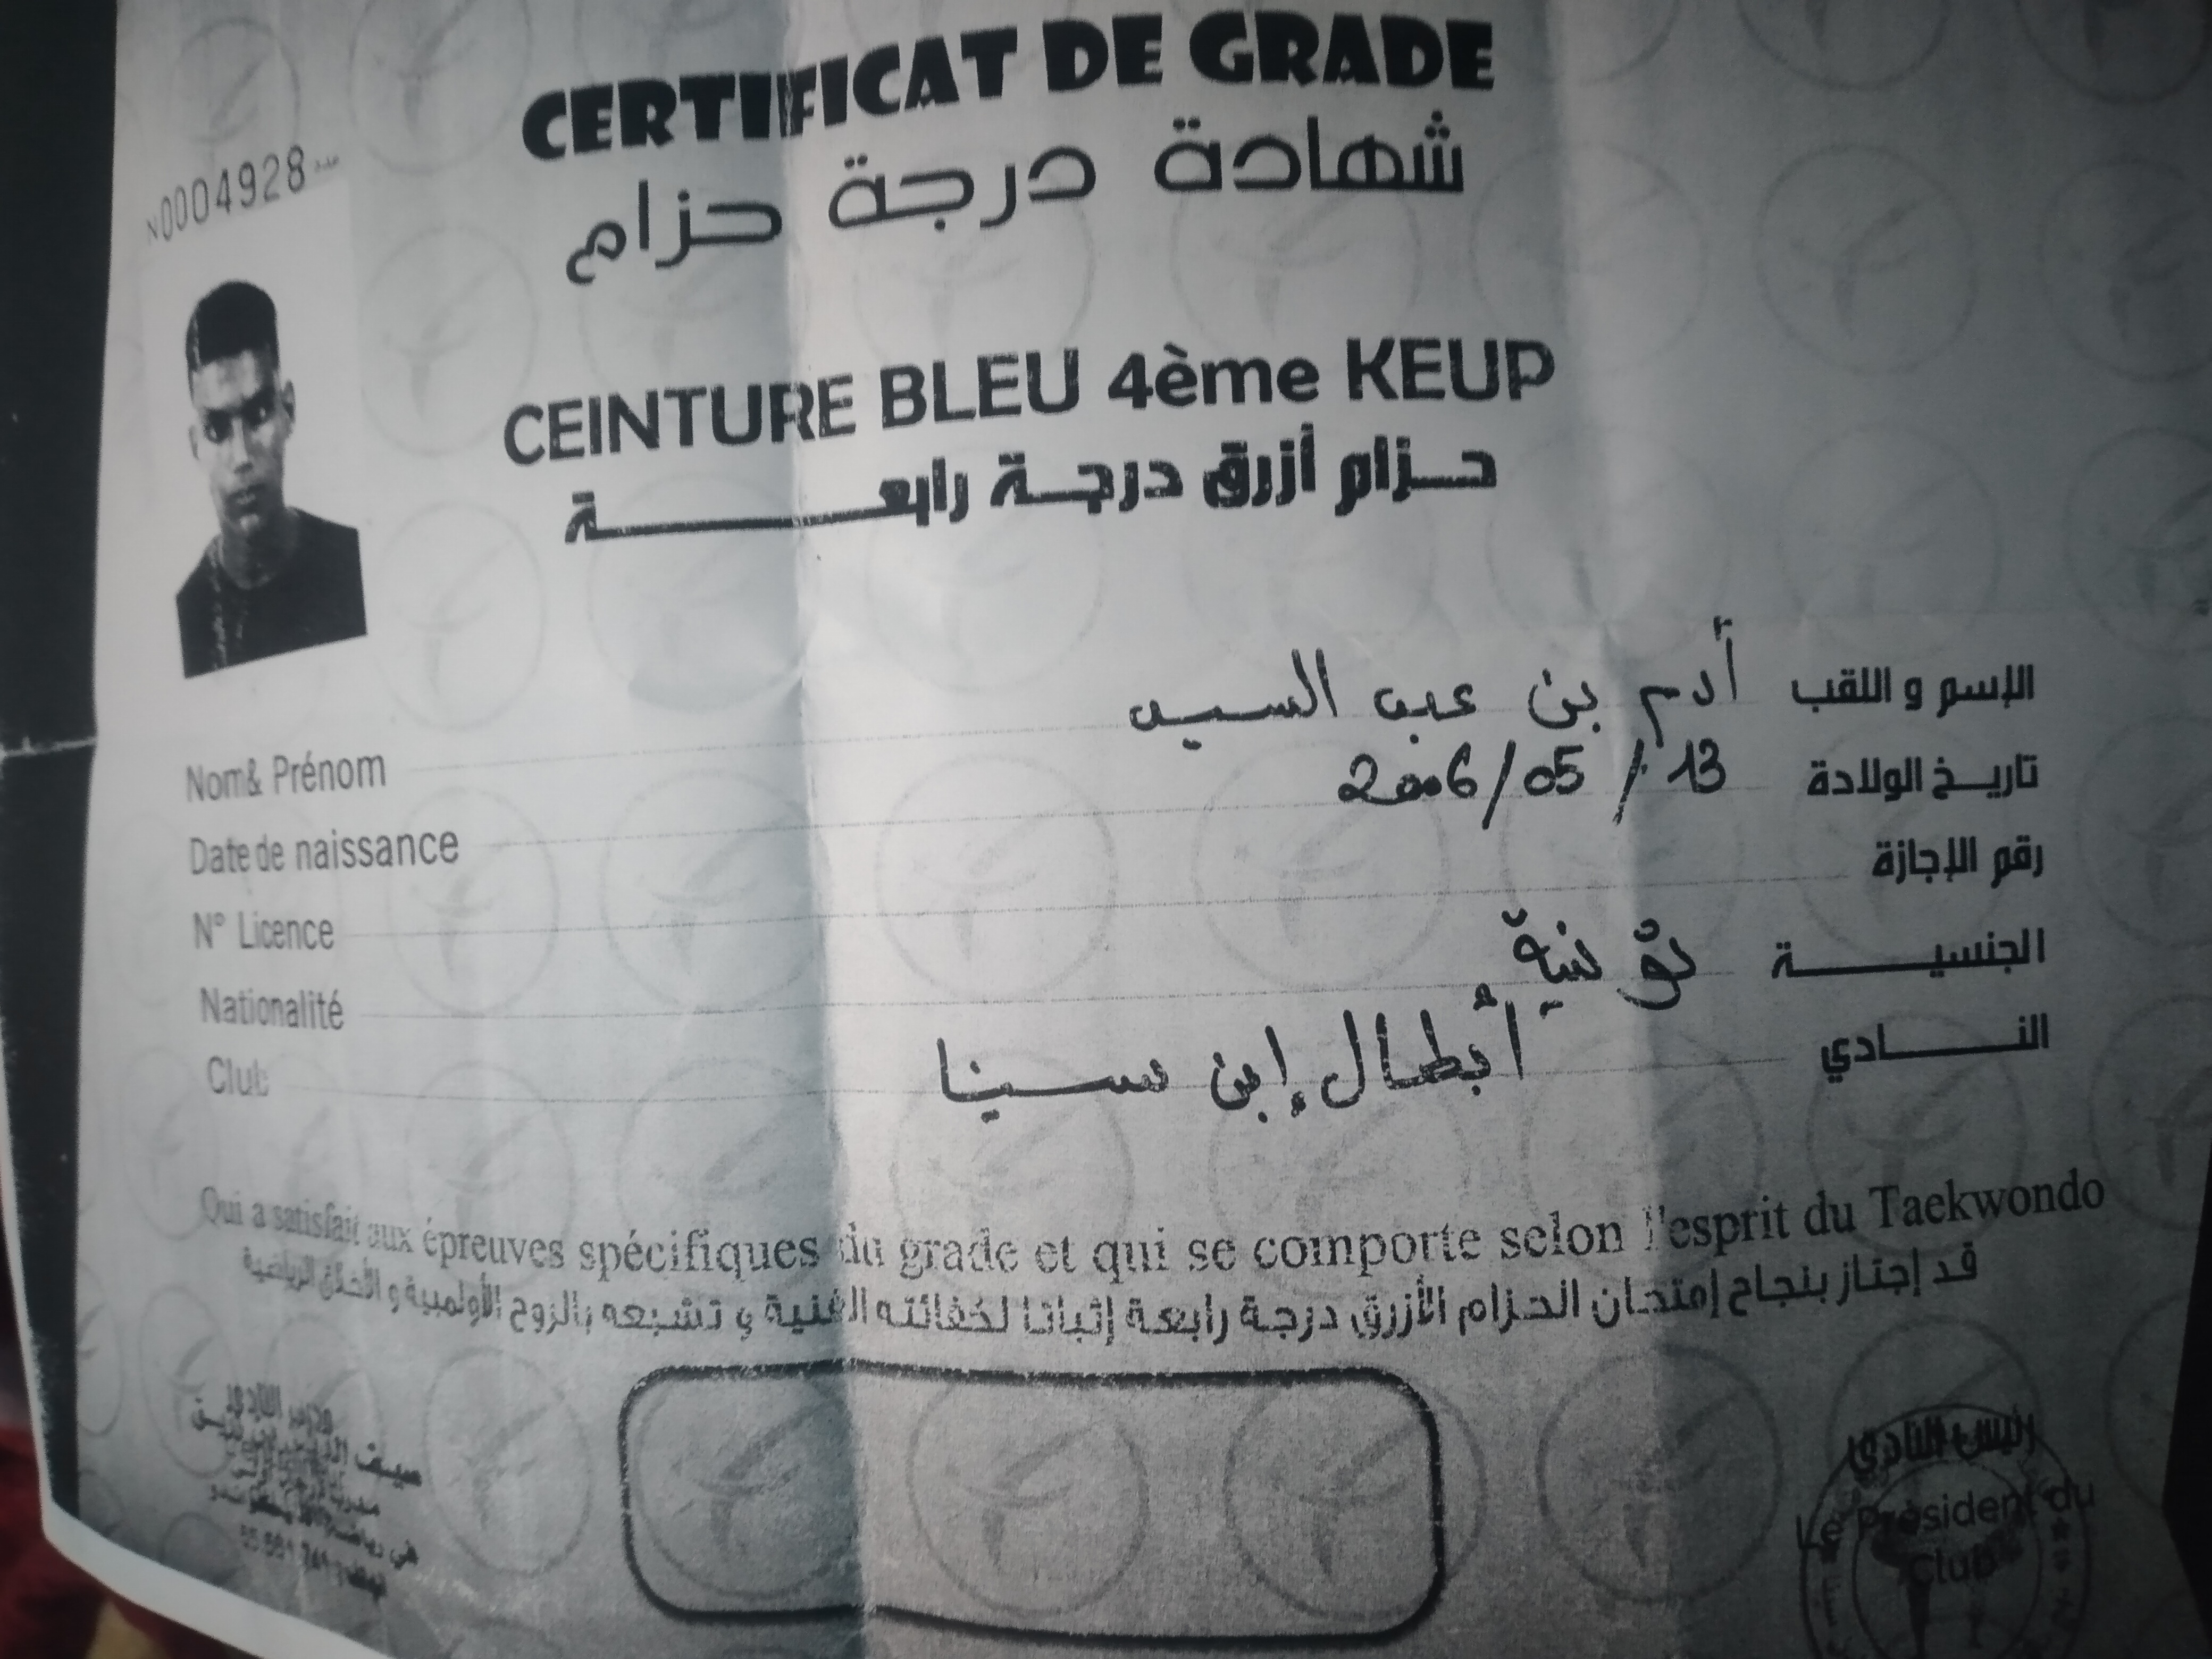 CERTIFICAT DE GRADE
شهادة درجة حزام
N0004928 عدد
CEINTURE BLEU 4ème KEUP
حزام أزرق درجة رابعة
الإسم و اللقب أدم بن عبد السيد
Nom& Prénom
تاريخ الولادة 13 / 05 / 2006
Date de naissance
رقم الإجازة
N° Licence
الجنسية تونسية
Nationalité
النادي أبطال إبن سينا
Club
Qui a satisfait aux épreuves spécifiques du grade et qui se comporte selon l'esprit du Taekwondo
قد إجتاز بنجاح إمتحان الحزام الأزرق درجة رابعة إثباتا لكفائته الفنية و تشبعه بالروح الأولمبية و الأخلاق الرياضية
رئيس النادي
Le Président du
Club